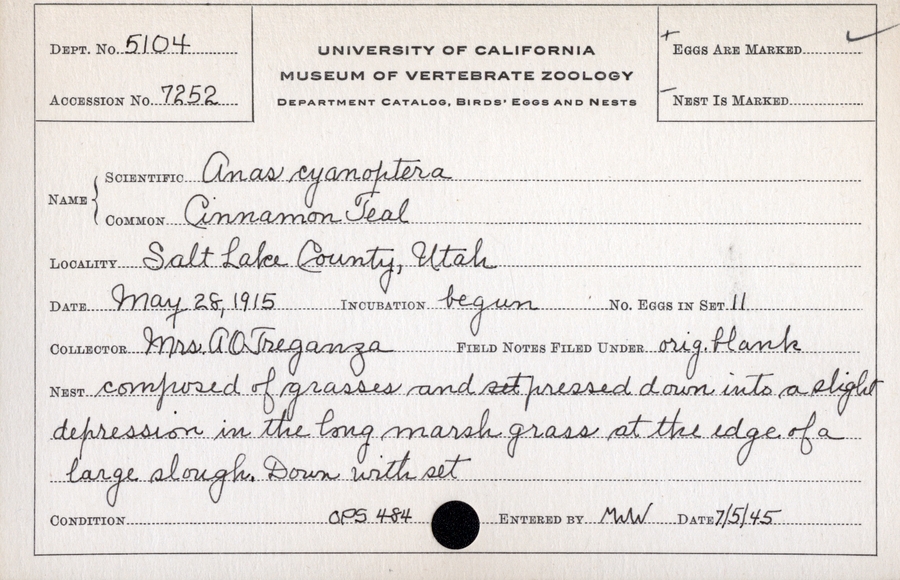 Dept. No. 5104
Accession No. 7252
UNIVERSITY OF CALIFORNIA
MUSEUM OF VERTEBRATE ZOOLOGY
Department Catalog, Birds' Eggs and Nests
+ Eggs Are Marked ✓
- Nest Is Marked
Name { Scientific Anas cyanoptera
Common Cinnamon Teal
Locality Salt Lake County, Utah
Date May 28, 1915 Incubation begun No. Eggs in Set 11
Collector Mrs. A O Treganza Field Notes Filed Under orig. blank
Nest composed of grasses and set pressed down into a slight
depression in the long marsh grass at the edge of a
large slough. Down with set
Condition OPS 484 Entered by MWW Date 7/5/45